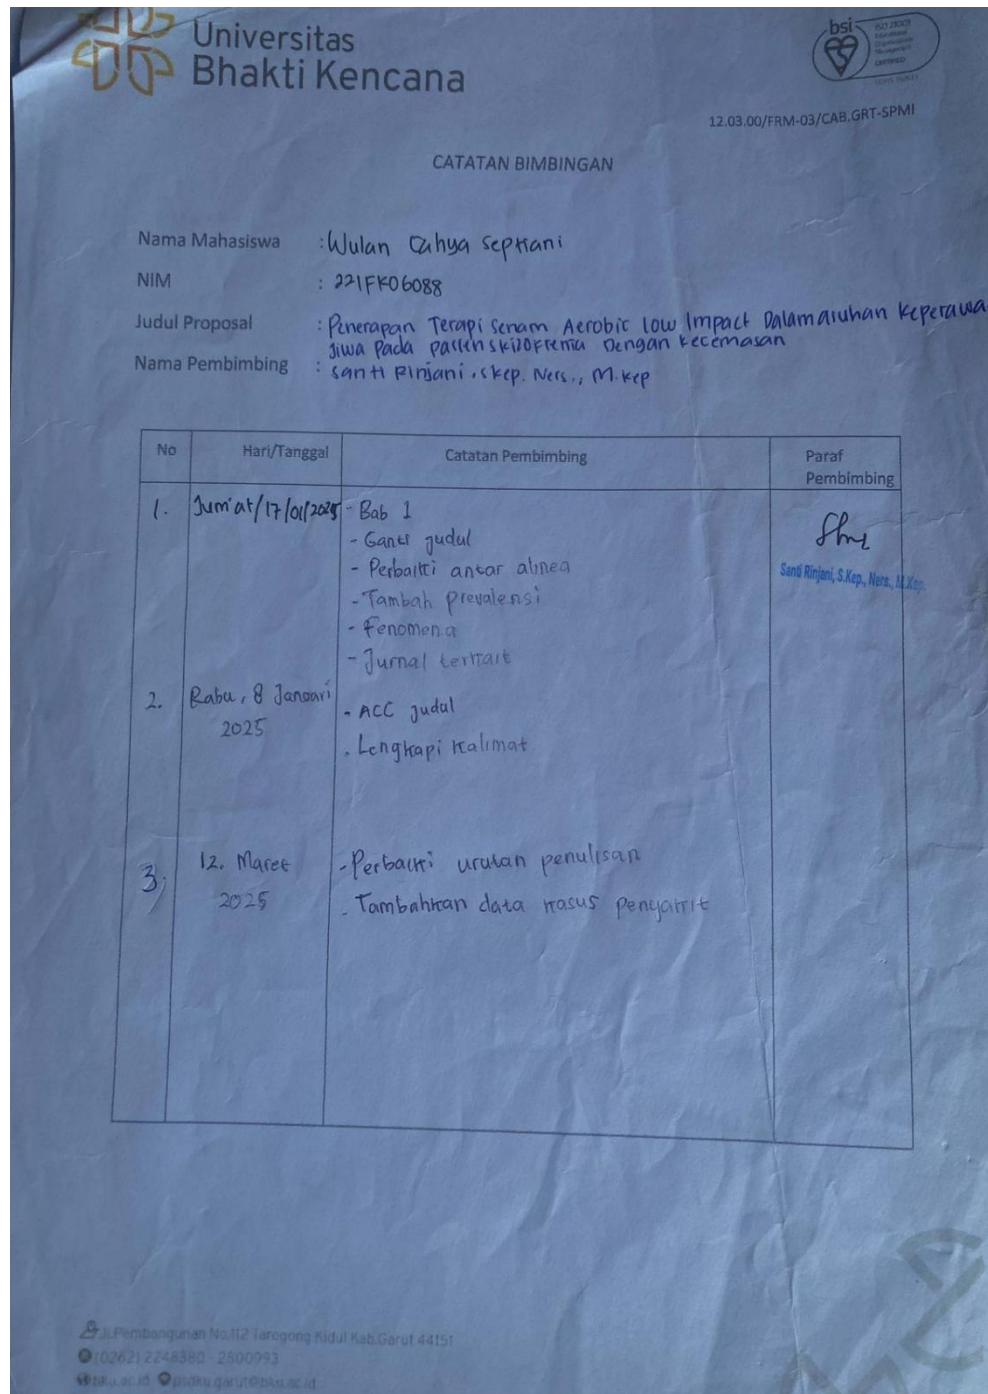 Universitas
Bhakti Kencana
bsi
12.03.00/FRM-03/CAB.GRT-SPMI
CATATAN BIMBINGAN
Nama Mahasiswa : Wulan Cahya Septiani
NIM : 221FK06088
Judul Proposal : Penerapan Terapi Senam Aerobic low Impact Dalam asuhan Keperawa
Jiwa Pada pasien skizofrenia Dengan kecemasan
Nama Pembimbing : Santi Rinjani, S.kep. Ners., M.kep
No Hari/Tanggal Catatan Pembimbing Paraf
Pembimbing
1. Jum'at/17/01/2025 - Bab 1
- Ganti judul
- Perbaiki antar alinea
Santi Rinjani, S.Kep., Ners., M.Kep.
- Tambah prevalensi
- Fenomena
- Jurnal terkait
2. Rabu, 8 Januari
2025
- ACC judul
- Lengkapi kalimat
3. 12. Maret
2025
- Perbaiki urutan penulisan
- Tambahkan data kasus penyakit
Jl.Pembangunan No.112 Tarogong Kidul Kab.Garut 44151
(0262) 2248380 - 2800993
bku.ac.id psdku.garut@bku.ac.id